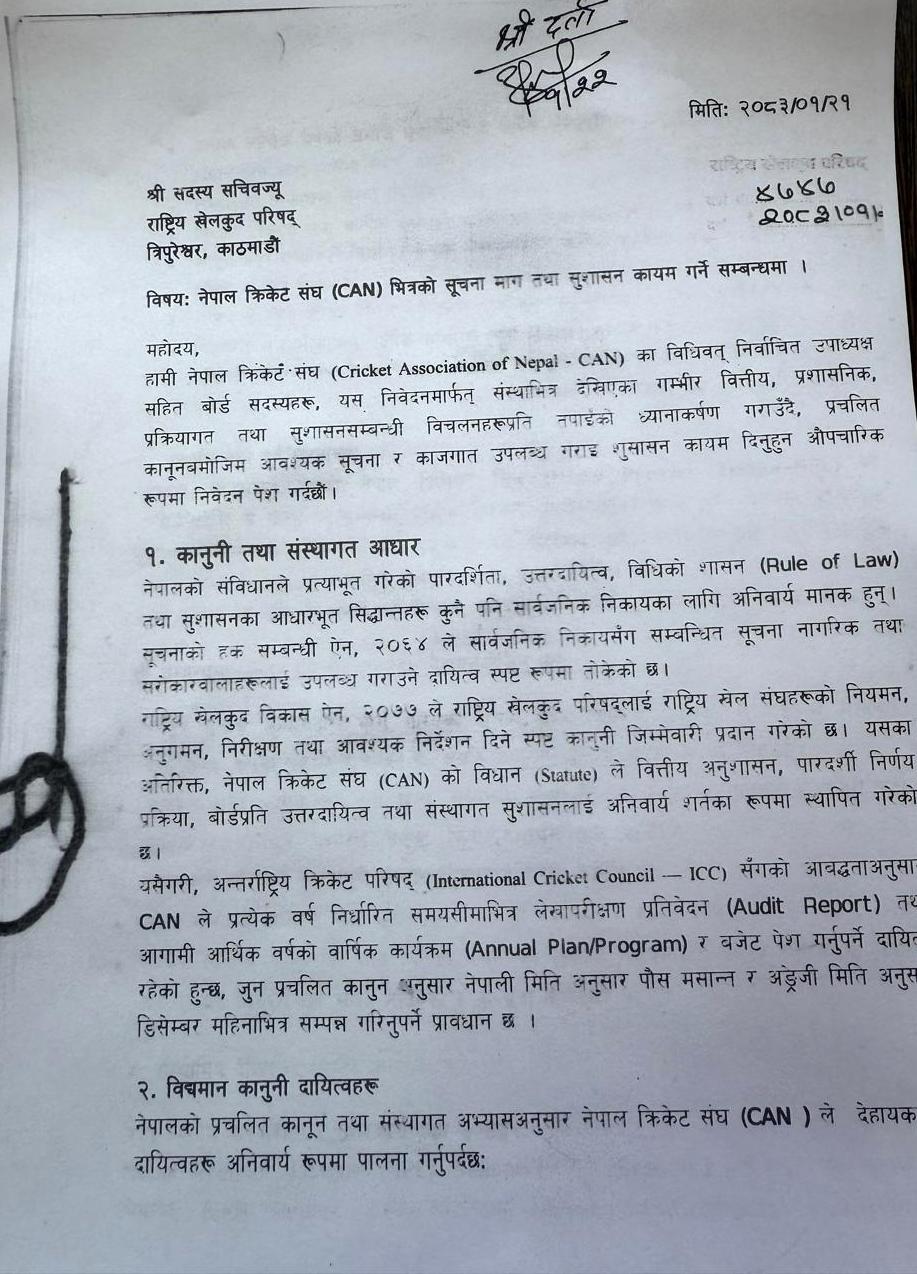 श्री दर्ता
मिति: २०८३/०१/२१
राष्ट्रिय खेलकुद परिषद्
४७४७
२०८३।०१।
श्री सदस्य सचिवज्यू
राष्ट्रिय खेलकुद परिषद्
त्रिपुरेश्वर, काठमाडौं
विषय: नेपाल क्रिकेट संघ (CAN) भित्रको सूचना माग तथा सुशासन कायम गर्ने सम्बन्धमा ।
महोदय,
हामी नेपाल क्रिकेट संघ (Cricket Association of Nepal - CAN) का विधिवत् निर्वाचित उपाध्यक्ष
सहित बोर्ड सदस्यहरू, यस निवेदनमार्फत् संस्थाभित्र देखिएका गम्भीर वित्तीय, प्रशासनिक,
प्रक्रियागत तथा सुशासनसम्बन्धी विचलनहरूप्रति तपाईंको ध्यानाकर्षण गराउँदै, प्रचलित
कानूनबमोजिम आवश्यक सूचना र काजगात उपलब्ध गराइ शुसासन कायम दिनुहुन औपचारिक
रूपमा निवेदन पेश गर्दछौं।
१. कानुनी तथा संस्थागत आधार
नेपालको संविधानले प्रत्याभूत गरेको पारदर्शिता, उत्तरदायित्व, विधिको शासन (Rule of Law)
तथा सुशासनका आधारभूत सिद्धान्तहरू कुनै पनि सार्वजनिक निकायका लागि अनिवार्य मानक हुन्।
सूचनाको हक सम्बन्धी ऐन, २०६४ ले सार्वजनिक निकायसँग सम्बन्धित सूचना नागरिक तथा
सरोकारवालाहरूलाई उपलब्ध गराउने दायित्व स्पष्ट रूपमा तोकेको छ।
राष्ट्रिय खेलकुद विकास ऐन, २०७७ ले राष्ट्रिय खेलकुद परिषद्लाई राष्ट्रिय खेल संघहरूको नियमन,
अनुगमन, निरीक्षण तथा आवश्यक निर्देशन दिने स्पष्ट कानुनी जिम्मेवारी प्रदान गरेको छ। यसका
अतिरिक्त, नेपाल क्रिकेट संघ (CAN) को विधान (Statute) ले वित्तीय अनुशासन, पारदर्शी निर्णय
प्रक्रिया, बोर्डप्रति उत्तरदायित्व तथा संस्थागत सुशासनलाई अनिवार्य शर्तका रूपमा स्थापित गरेको
छ।
यसैगरी, अन्तर्राष्ट्रिय क्रिकेट परिषद् (International Cricket Council — ICC) सँगको आवद्धताअनुसा
CAN ले प्रत्येक वर्ष निर्धारित समयसीमाभित्र लेखापरीक्षण प्रतिवेदन (Audit Report) तथ
आगामी आर्थिक वर्षको वार्षिक कार्यक्रम (Annual Plan/Program) र बजेट पेश गर्नुपर्ने दायित
रहेको हुन्छ, जुन प्रचलित कानुन अनुसार नेपाली मिति अनुसार पौस मसान्त र अङ्ग्रेजी मिति अनुस
डिसेम्बर महिनाभित्र सम्पन्न गरिनुपर्ने प्रावधान छ ।
२. विद्यमान कानुनी दायित्वहरू
नेपालको प्रचलित कानून तथा संस्थागत अभ्यासअनुसार नेपाल क्रिकेट संघ (CAN ) ले देहायक
दायित्वहरू अनिवार्य रूपमा पालना गर्नुपर्दछ: